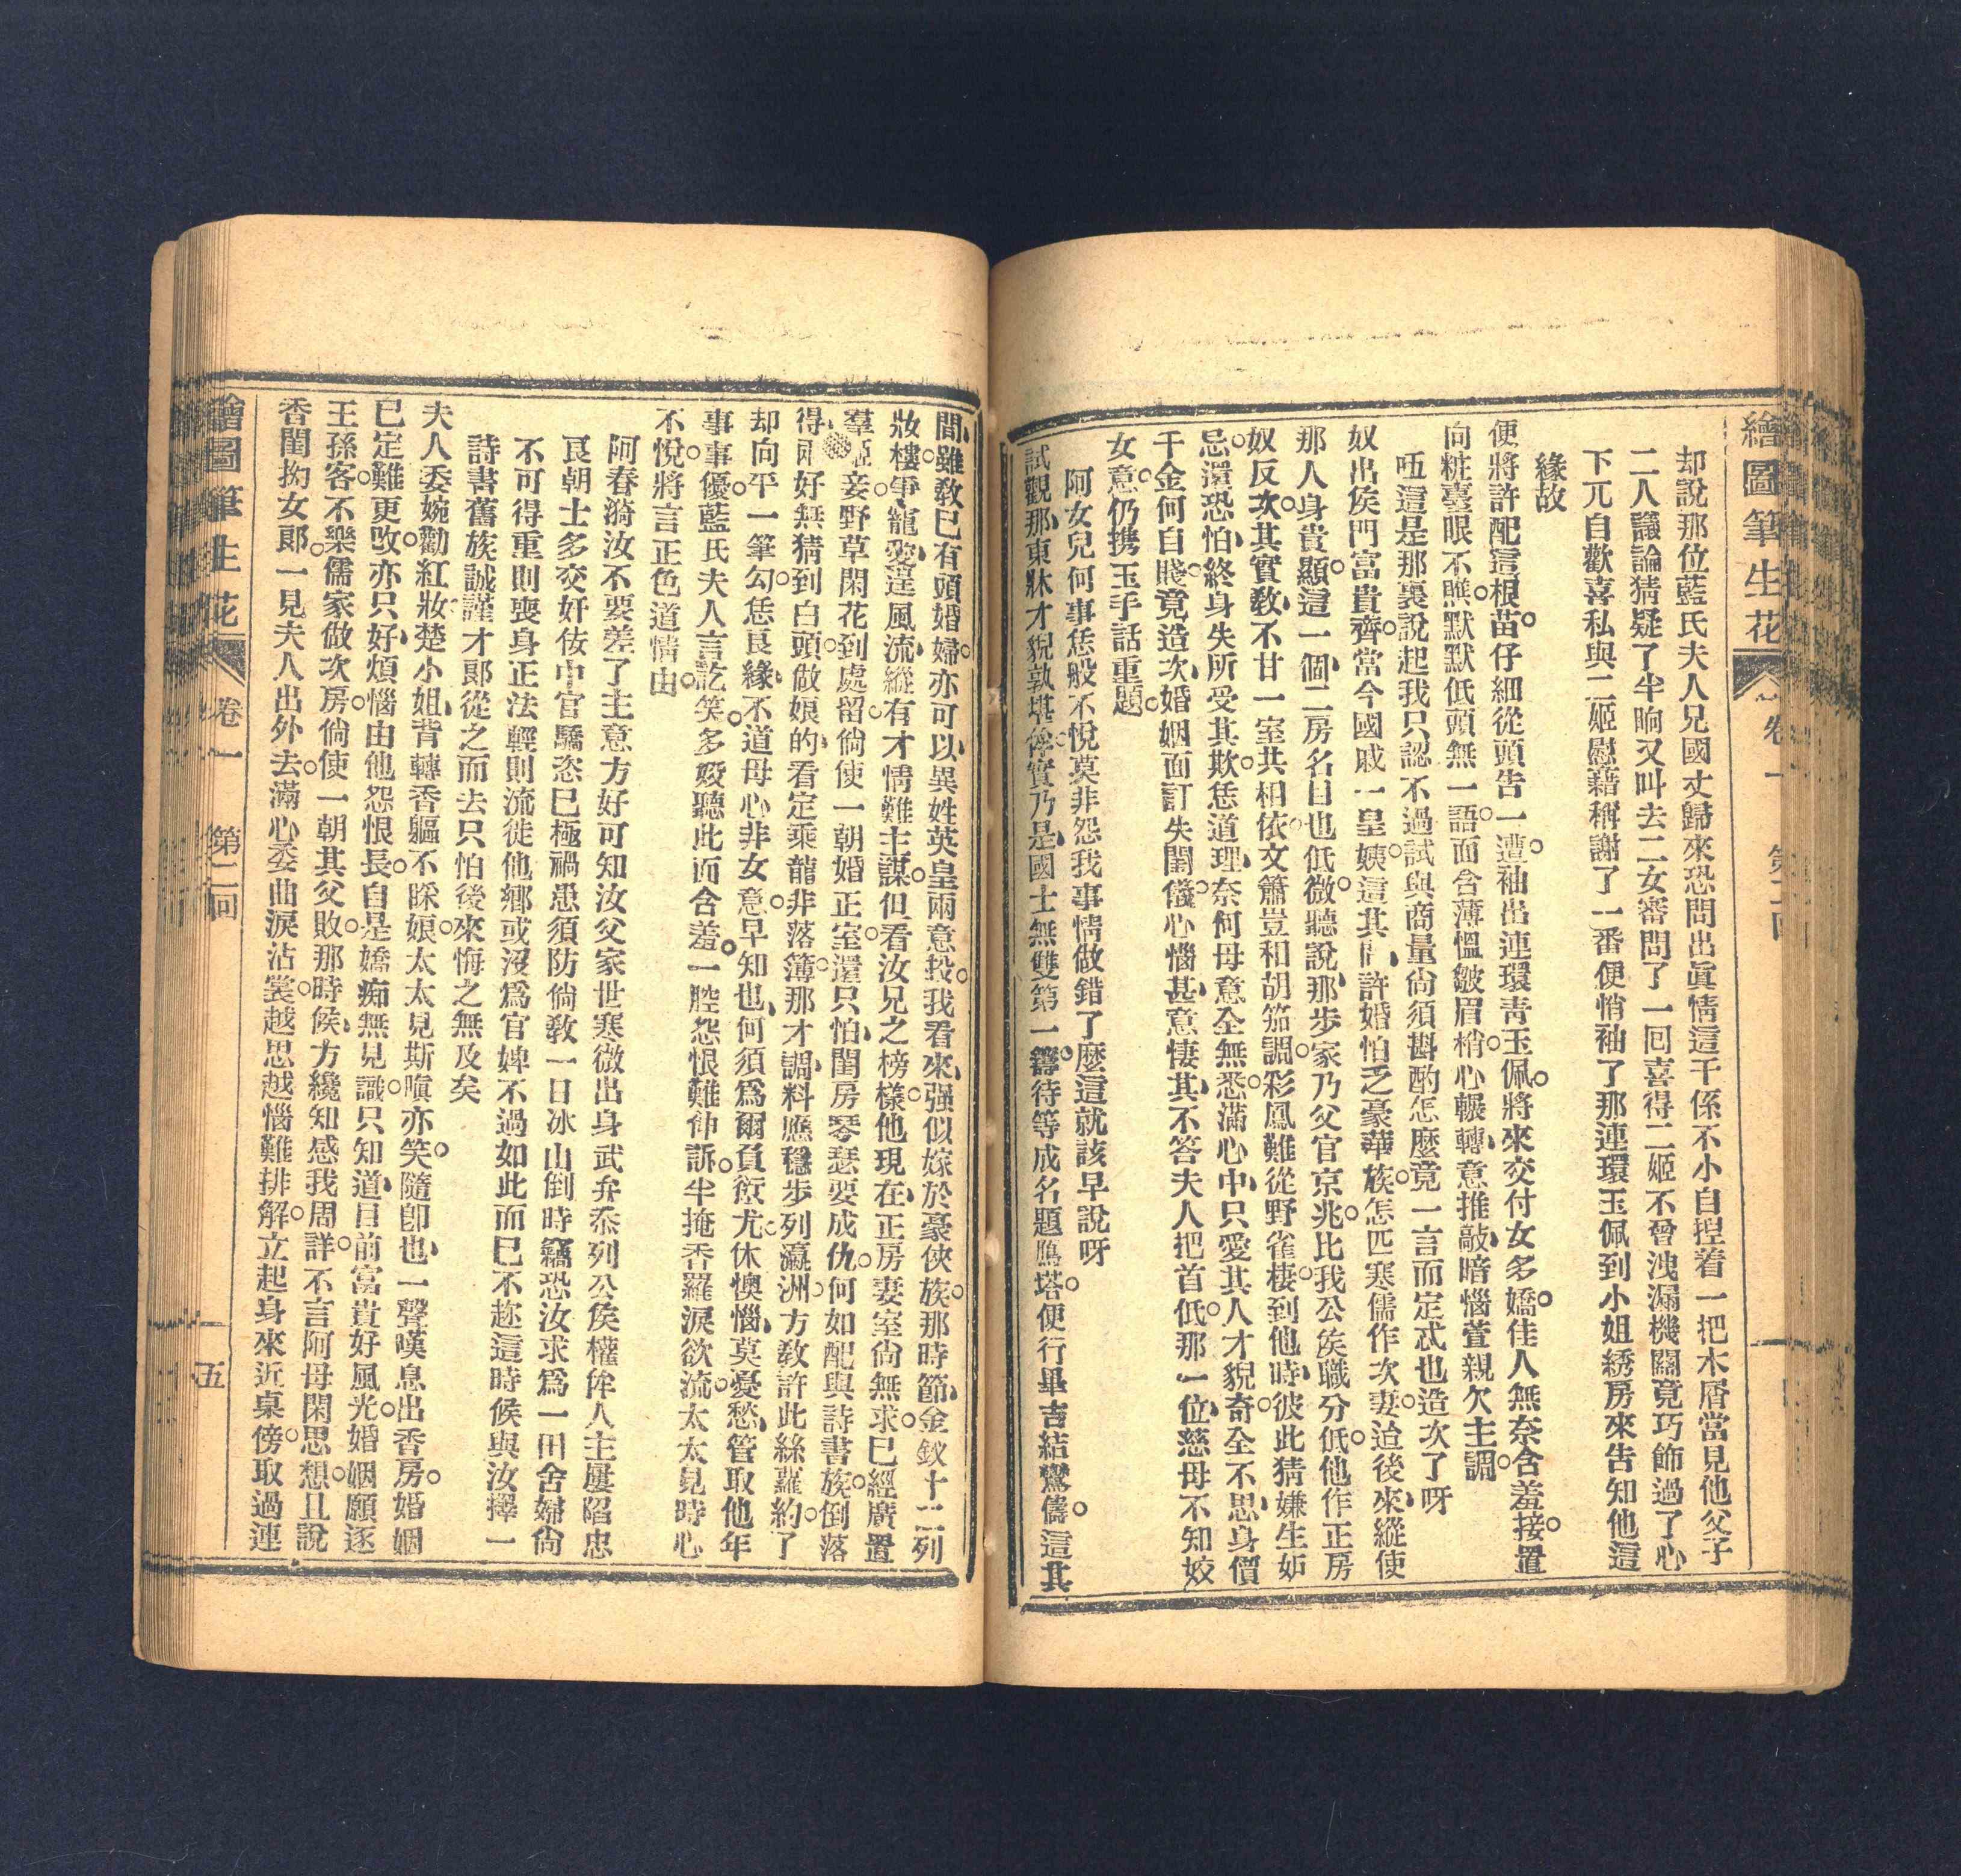 繪圖筆生花 卷一 第二回
却說那位藍氏夫人兄國丈歸來恐問出眞情這干係不小自揑着一把木屑當見他父子
二人議論猜疑了半晌又叫去二女審問了一回喜得二姬不曾洩漏機關竟巧飾過了心
下兀自歡喜私與二姬慰藉稱謝了一番便悄袖了那連環玉佩到小姐綉房來告知他這
緣故
便將許配這根苗。仔細從頭告一遭。袖出連環靑玉佩。將來交付女多嬌。佳人無奈含羞接。置
向粧臺眼不瞧。默默低頭無一語。面含薄慍皺眉梢。心輾轉、意推敲、暗惱萱親欠主調。
吥這是那裏說起我只認不過試與商量尙須斟酌怎麼竟一言而定忒也造次了呀
奴出侯門富貴齊。當今國戚一皇姨。這其 、許婚怕乏豪華族。怎匹寒儒作次妻。迨後來、縱使
那人身貴顯。這一個、二房名目也低微。聽說那、步家乃父官京兆。比我公侯職分低。他作正房
奴反次。其實敎、不甘一室共相依。文簫豈和胡笳調。彩鳳難從野雀棲。到他時、彼此猜嫌生妬
忌。還恐怕、終身失所受其欺。恁道理、奈何母意全無悉。滿心中、只愛其人才貌奇。全不思、身價
千金何自賤。竟造次、婚姻面訂失閨儀。心惱甚、意悽其、不答夫人把首低。那一位、慈母不知姣
女意。仍携玉手話重題。
阿女兒何事恁般不悅莫非怨我事情做錯了麼這就該早說呀
試觀那、東牀才貌孰堪儔。實乃是、國士無雙第一籌。待等成名題鴈塔。便行畢吉結鸞儔。這其
間、雖敎已有頭婚婦。亦可以、異姓英皇兩意投。我看來、强似嫁於豪俠族。那時節、金釵十二列
妝樓。爭寵愛、逞風流、縱有才情難主謀。但看汝兄之榜樣。他現在、正房妻室尙無求。已經廣置
羣姬妾。野草閑花到處留。倘使一朝婚正室。還只怕、閨房琴瑟要成仇。何如配與詩書族。倒落
得、 好無猜到白頭。做娘的、看定乘龍非落簿。那才調、料應穩步列瀛洲。方敎許此絲蘿約。了
却向平一筆勾。恁艮緣、不道母心非女意。早知也、何須爲爾負愆尤。休懊惱、莫憂愁、管取他年
事事優。藍氏夫人言訖笑。多姣聽此面含羞。一腔怨恨難伸訴。半掩香羅淚欲流。太太見時心
不悅。將言正色道情由。
阿春漪汝不要差了主意方好可知汝父家世寒微出身武弁忝列公侯權侔人主屢陷忠
艮朝士多交奸佞中官驕恣已極禍患須防倘敎一日冰山倒時竊恐汝求爲一田舍婦尙
不可得重則喪身正法輕則流徙他鄕或沒爲官婢不過如此而已不趂這時候與汝擇一
詩書舊族誠謹才郞從之而去只怕後來悔之無及矣
夫人委婉勸紅妝。楚小姐、背轉香軀不睬娘。太太見斯嗔亦笑。隨卽也、一聲嘆息出香房。婚姻
已定難更改。亦只好、煩惱由他怨恨長。自是嬌痴無見識。只知道、目前富貴好風光。婚姻願逐
王孫客。不樂儒家做次房。倘使一朝其父敗。那時候、方纔知感我周詳。不言阿母閑思想。且說
香閨抝女郞。一見夫人出外去。滿心委曲淚沾裳。越思越惱難排解。立起身來近桌傍。取過連
繪圖筆生花 卷一 第二回 五